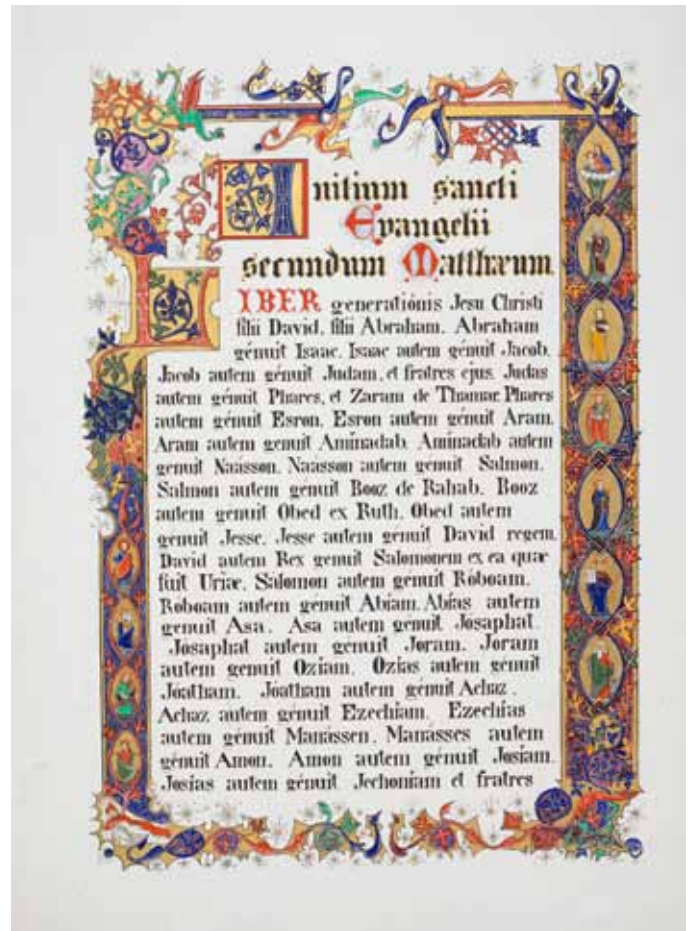 Initium sancti
Evangelii
secundum Matthæum
LIBER generatiónis Jesu Christi
filii David, filii Abraham. Abraham
génuit Isaac. Isaac autem génuit Jacob.
Jacob autem génuit Judam, et fratres ejus. Judas
autem génuit Phares, et Zaram de Thamar. Phares
autem génuit Esron. Esron autem génuit Aram.
Aram autem genuit Amínadab. Aminadab autem
genuit Naásson. Naasson autem génuit Salmon.
Salmon autem genuit Booz de Rahab. Booz
autem genuit Obed ex Ruth. Obed autem
genuit Jesse. Jesse autem genuit David regem.
David autem Rex genuit Salomonem ex ea quæ
fuit Uriæ. Salomon autem genuit Roboam.
Roboam autem genuit Abíam. Abías autem
genuit Asa. Asa autem genuit Jósaphat.
Jósaphat autem genuit Joram. Joram
autem genuit Ozíam. Ozías autem génuit
Jóatham. Jóatham autem génuit Achaz.
Achaz autem génuit Ezechíam. Ezechías
autem génuit Manássen. Manásses autem
génuit Amon. Amon autem génuit Josíam.
Josías autem génuit Jechoníam et fratres